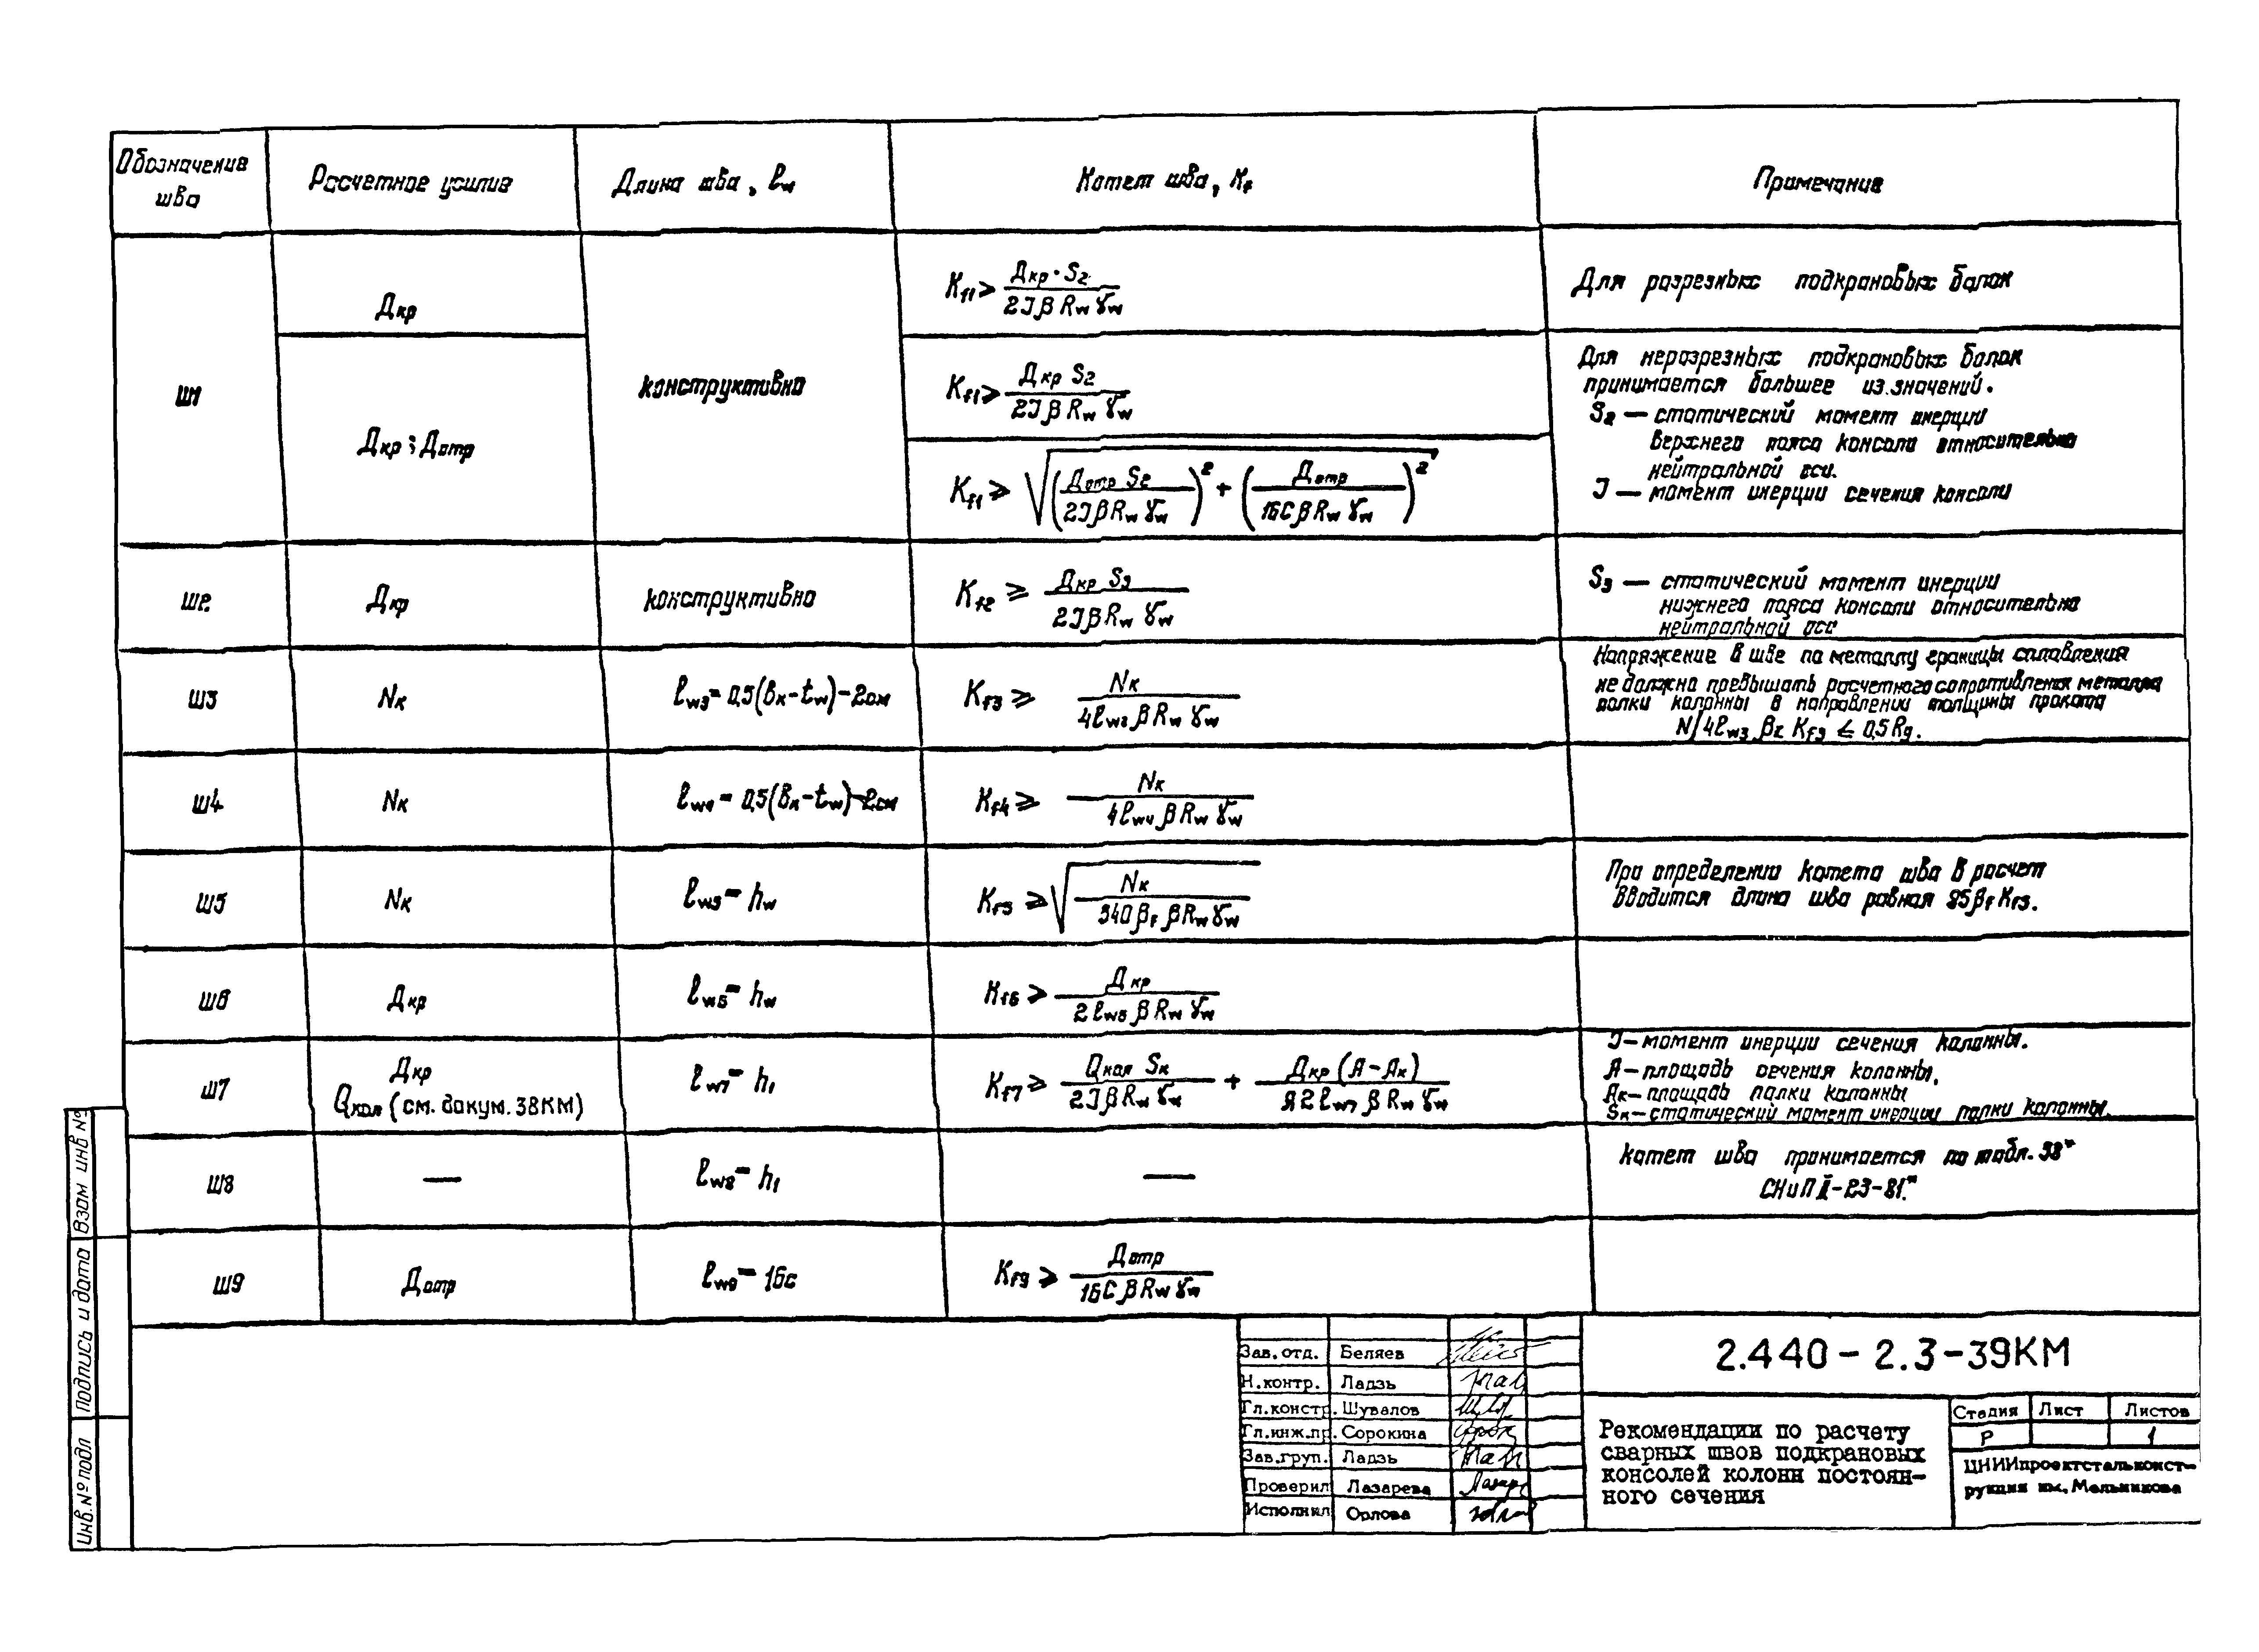 Обозначение шва
Расчетное усилие
Длина шва, ℓw
Катет шва, Kf
Примечание
Ш1
Дкр
конструктивно
Kf1 ≥ Дкр·S2 / 2Jβ Rw γw
Для разрезных подкрановых балок
Дкр; Дотр
Kf1 ≥ Дкр S2 / 2Jβ Rw γw
Kf1 ≥ √((Дотр S2 / 2Jβ Rw γw)² + (Дотр / 16Cβ Rw γw)²)
Для неразрезных подкрановых балок
принимается большее из значений.
S2 — статический момент инерции
верхнего пояса консоли относительно
нейтральной оси.
J — момент инерции сечения консоли
Ш2
Дкр
конструктивно
Kf2 ≥ Дкр S3 / 2Jβ Rw γw
S3 — статический момент инерции
нижнего пояса консоли относительно
нейтральной оси
Ш3
Nк
ℓw3 = 0,5(вк-tw)-2см
Kf3 ≥ Nк / 4ℓw3 β Rw γw
Напряжение в шве по металлу границы сплавления
не должно превышать расчетного сопротивления металла
полки колонны в направлении толщины проката
N/4ℓw3 βz Kf3 ≤ 0,5 Rg.
Ш4
Nк
ℓw4 = 0,5(вк-tw)-2см
Kf4 ≥ Nк / 4ℓw4 β Rw γw
Ш5
Nк
ℓw5 = hw
Kf5 ≥ √(Nк / 340 βf β Rw γw)
При определении катета шва в расчет
вводится длина шва равная 85 βf Kf5.
Ш6
Дкр
ℓw6 = hw
Kf6 ≥ Дкр / 2ℓw6 β Rw γw
Ш7
Дкр
Qкол (см. докум. 38КМ)
ℓw7 = h1
Kf7 ≥ Qкол Sк / 2Jβ Rw γw + Дкр (A-Aк) / A 2ℓw7 β Rw γw
J-момент инерции сечения колонны.
A-площадь сечения колонны.
Aк-площадь полки колонны
Sк-статический момент инерции полки колонны.
Ш8
—
ℓw8 = h1
—
катет шва принимается по табл. 38*
СНиП II-23-81*
Ш9
Дотр
ℓw9 = 16c
Kf9 ≥ Дотр / 16C β Rw γw
Инв.№ подл
Подпись и дата
Взам инв №
Зав.отд. Беляев
Н.контр. Ладзь
Гл.констр. Шувалов
Гл.инж.пр. Сорокина
Зав.груп. Ладзь
Проверил Лазарева
Исполнил Орлова
2.440-2.3-39КМ
Рекомендации по расчету
сварных швов подкрановых
консолей колонн постоян-
ного сечения
Стадия Лист Листов
Р 1
ЦНИИпроектстальконст-
рукция им. Мельникова